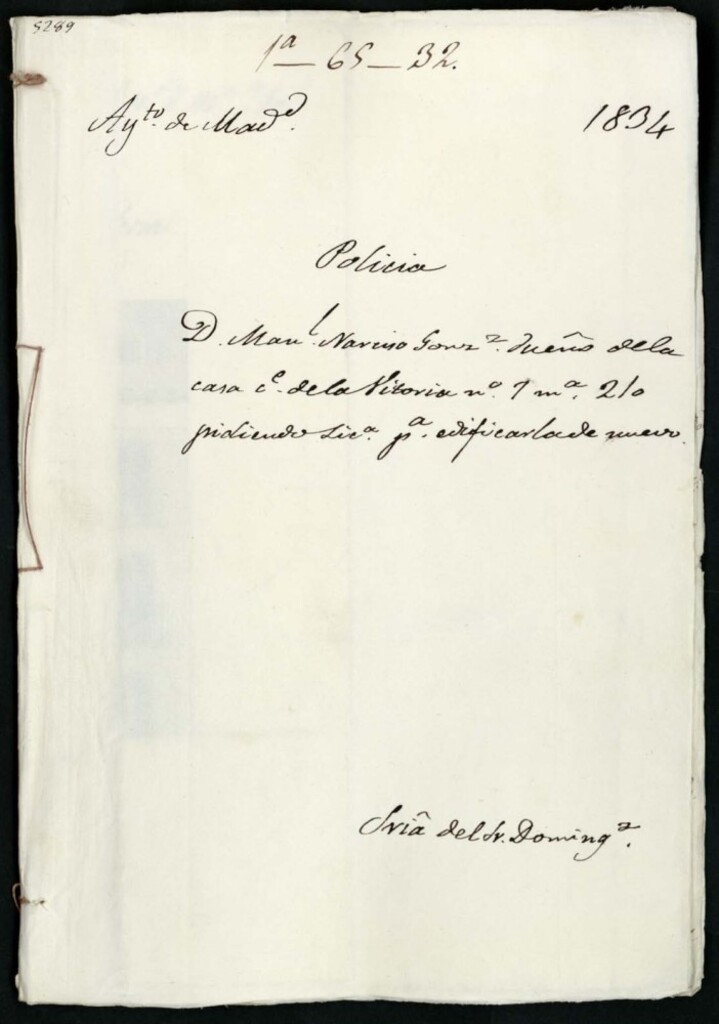 5289
1ª — 65 — 32.
Ayto. de Madd. 1834
Policia
D. Manl. Narciso Gonzz. dueño de la
casa ce. de la Vitoria nº. 1 mª. 210
pidiendo Licª. pª. edificarla de nuevo.
Sriâ del Sr. Domingz.